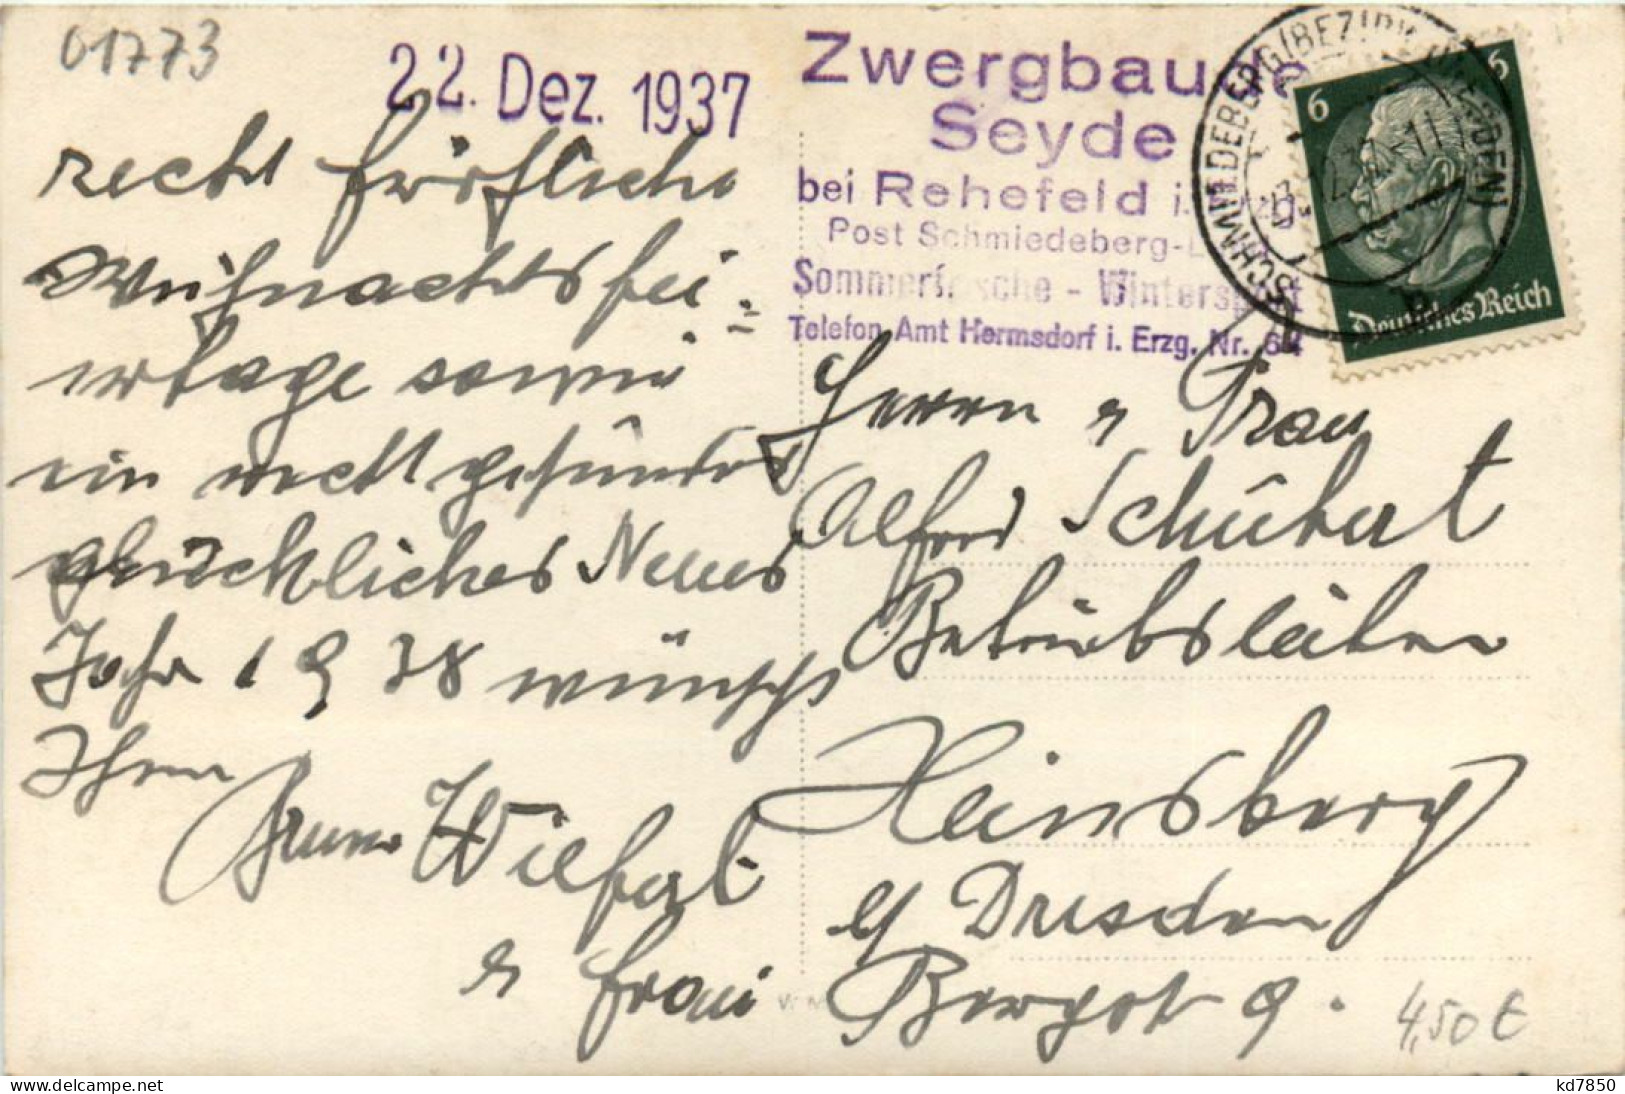 01773
22. Dez. 1937
recht fröhliche
Weihnachtsfei=
ertage sowie
ein recht gesundes
glückliches Neues
Jahr 1938 wünscht
Ihnen
Bruno Wilfert
u Frau
Zwergbaude
Seyde
bei Rehefeld i. Erzg.
Post Schmiedeberg-
Sommerfrische - Wintersport
Telefon Amt Hermsdorf i. Erzg. Nr. 64
SCHMIEDEBERG (BEZIRK DRESDEN)
6 6
Deutsches Reich
Herrn u Frau
Alfred Schubert
Betriebsleiter
Hainsberg
b/ Dresden
Bergstr 9.
4,50 €
www.delcampe.net
kd7850